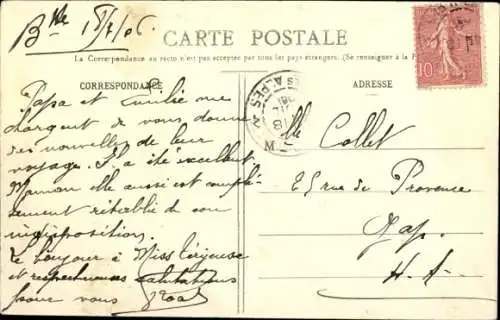 Blle 15/7/06
CARTE POSTALE
La Correspondance au recto n'est pas acceptée par tous les pays étrangers. (Se renseigner à la P
CORRESPONDANCE
ADRESSE
10
Papa et Emilie me
chargent de vous donner
des nouvelles de leur
voyage. Il a été excellent
Maman elle aussi est complè-
tement rétablie de son
indisposition.
Le bonjour à Miss
et respectueuses salutations
pour vous
Mlle Collet
25 rue de Provence
Gap.
H-A-